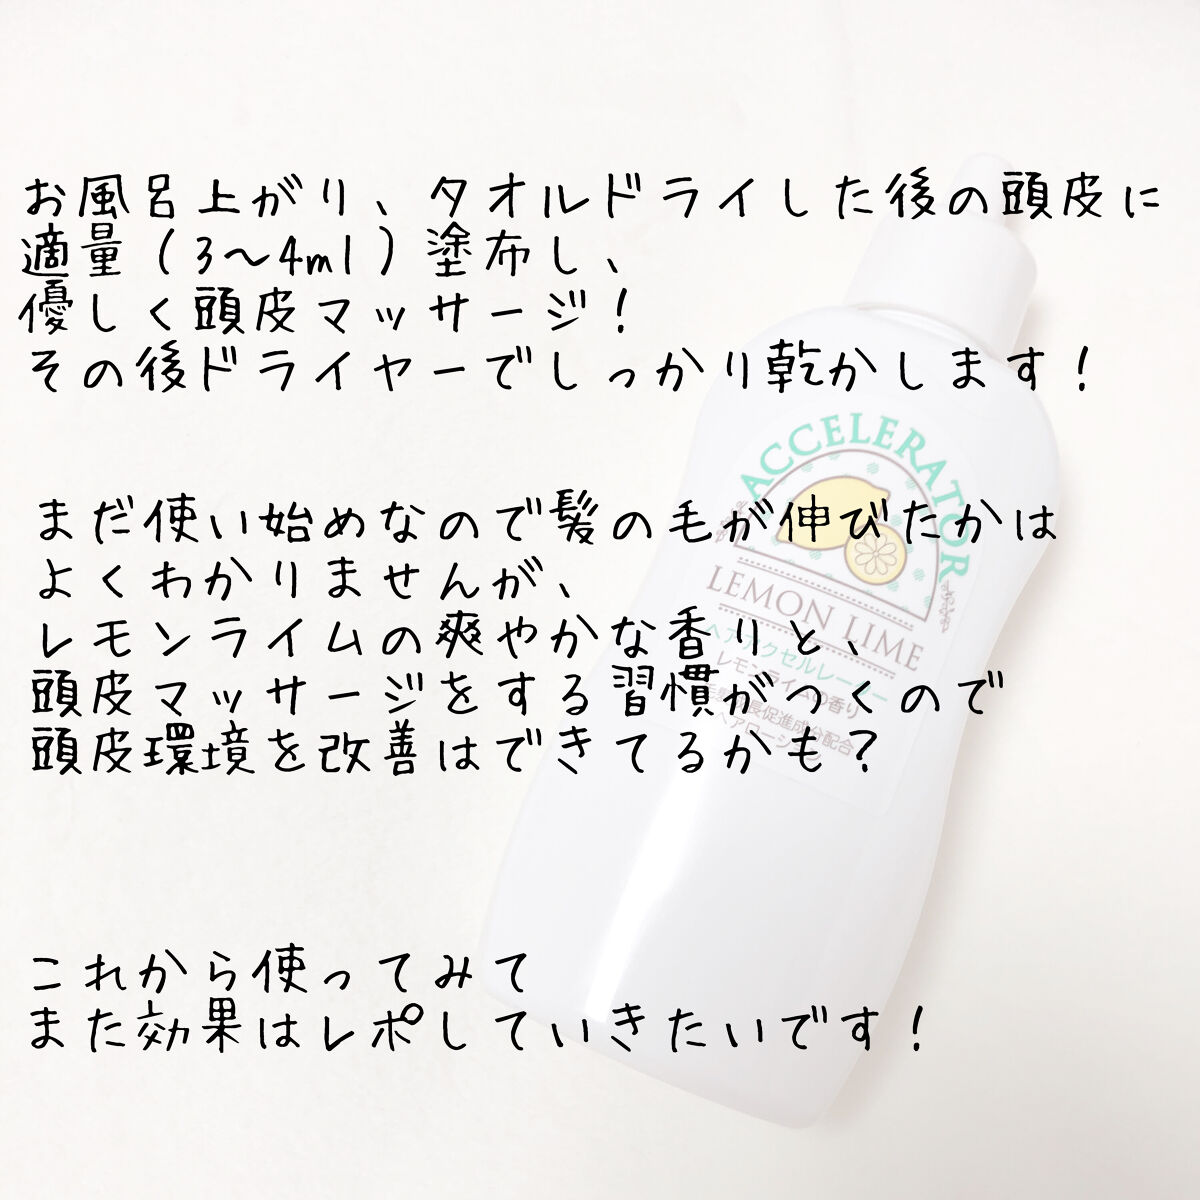 お風呂上がり、タオルドライした後の頭皮に
適量（3〜4ml）塗布し、
優しく頭皮マッサージ！
その後ドライヤーでしっかり乾かします！
まだ使い始めなので髪の毛が伸びたかは
よくわかりませんが、
レモンライムの爽やかな香りと、
頭皮マッサージをする習慣がつくので
頭皮環境を改善はできてるかも？
これから使ってみて
また効果はレポしていきたいです！
ACCELERATOR
LEMON LIME
ヘアアクセルレーター
レモンライムの香り
長促進成分配合
ヘアローション